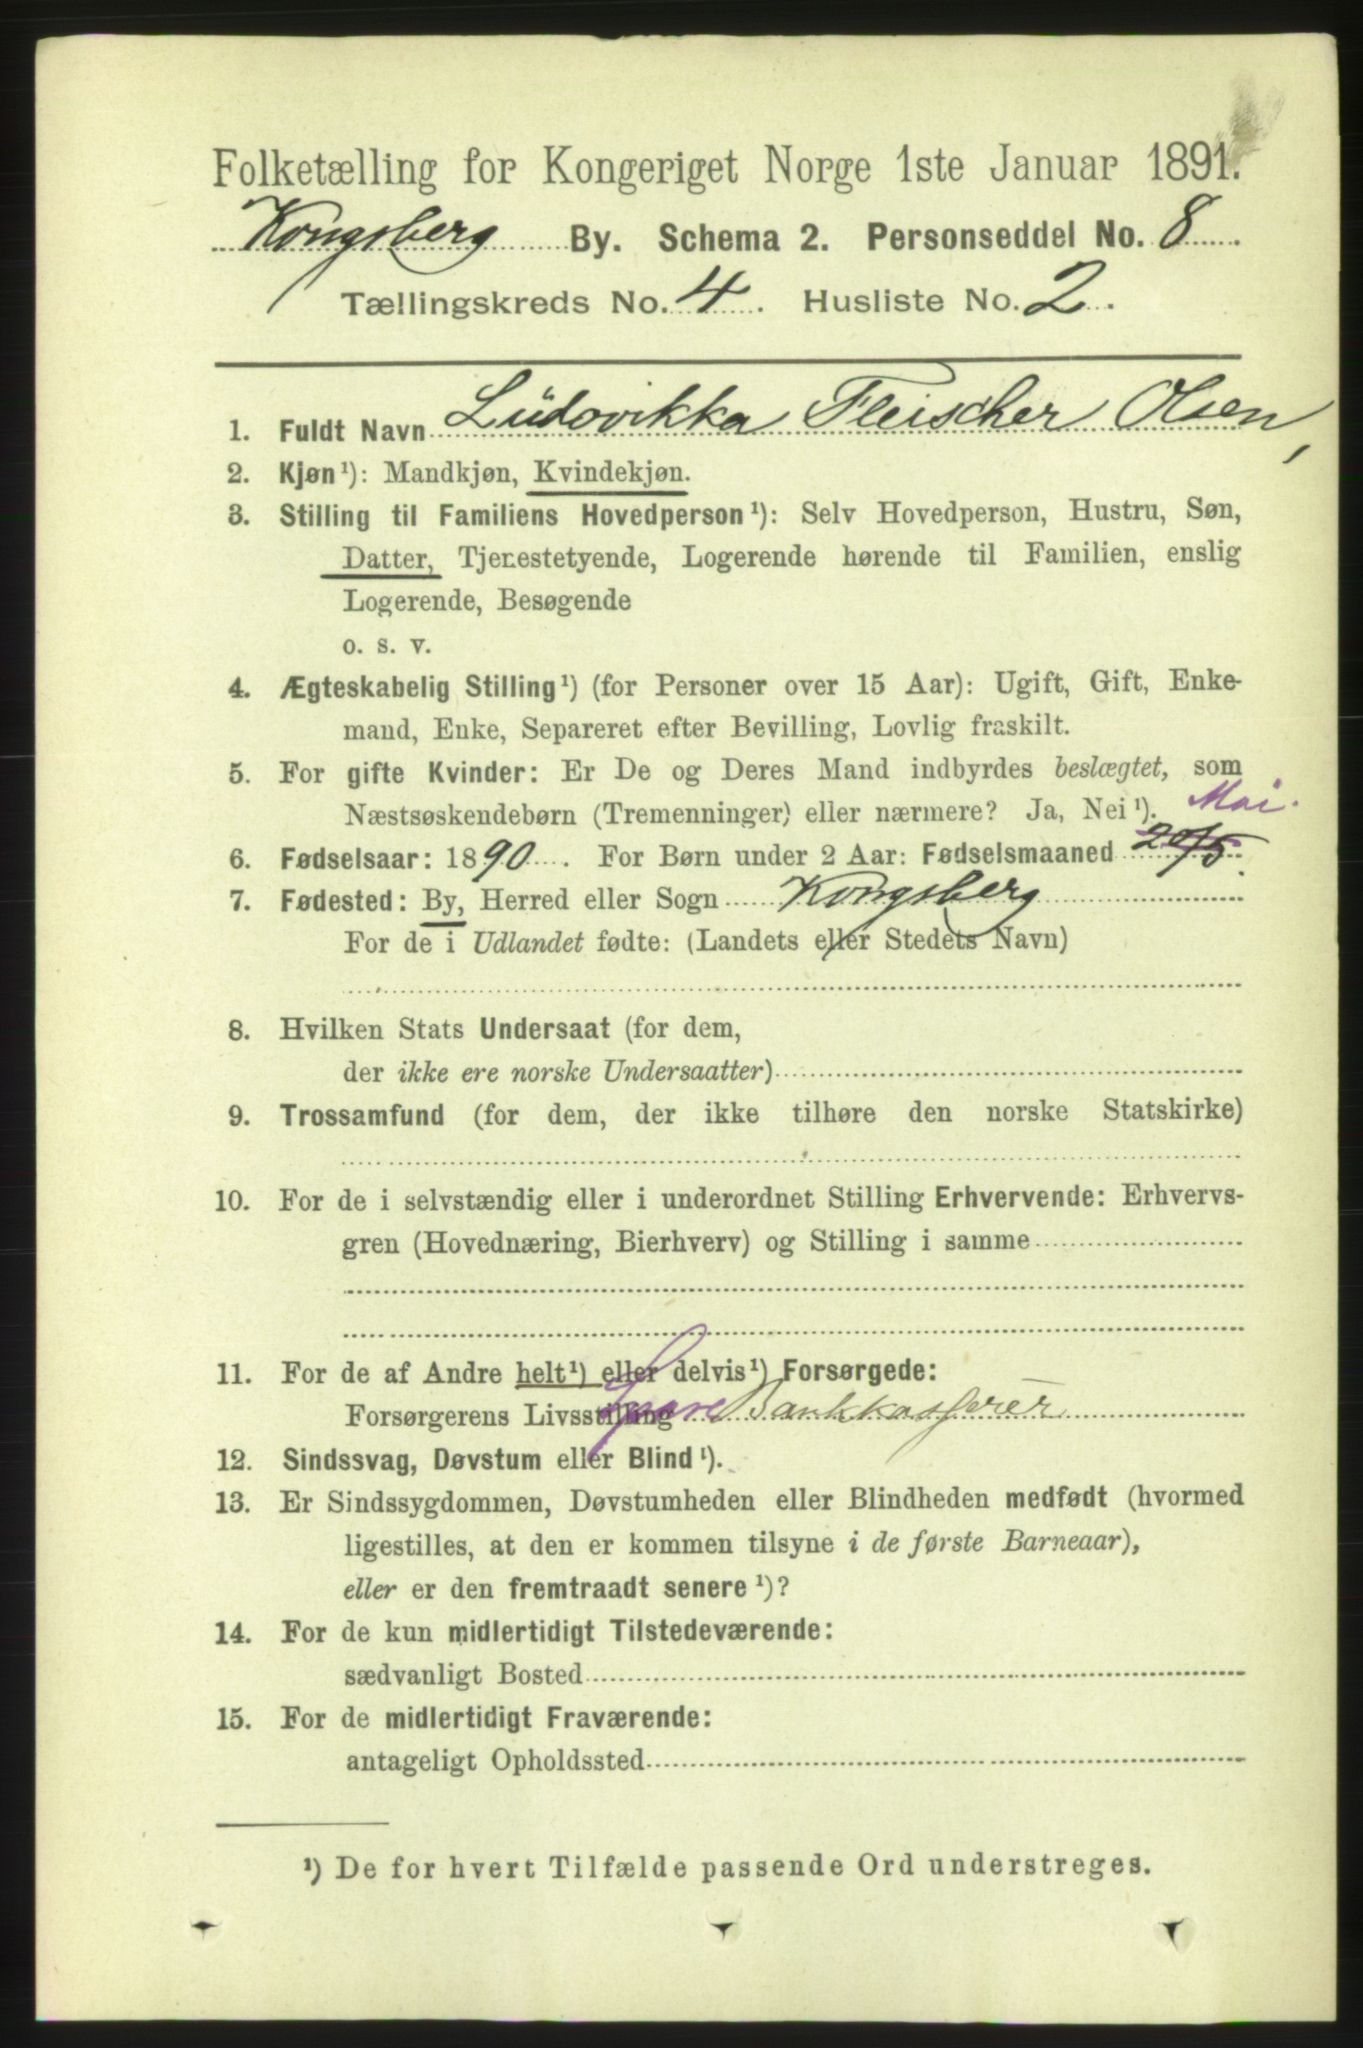 Folketælling for Kongeriget Norge 1ste Januar 1891.
Kongsberg By. Schema 2. Personseddel No. 8
Tællingskreds No. 4. Husliste No. 2.
1. Fuldt Navn Ludovikka Fleischer Olsen,
2. Kjøn¹): Mandkjøn, Kvindekjøn.
3. Stilling til Familiens Hovedperson¹): Selv Hovedperson, Hustru, Søn,
Datter, Tjenestetyende, Logerende hørende til Familien, enslig
Logerende, Besøgende
o. s. v.
4. Ægteskabelig Stilling¹) (for Personer over 15 Aar): Ugift, Gift, Enke-
mand, Enke, Separeret efter Bevilling, Lovlig fraskilt.
5. For gifte Kvinder: Er De og Deres Mand indbyrdes beslægtet, som
Næstsøskendebørn (Tremenninger) eller nærmere? Ja, Nei¹).
Mai.
6. Fødselsaar: 1890. For Børn under 2 Aar: Fødselsmaaned 20/5.
7. Fødested: By, Herred eller Sogn Kongsberg
For de i Udlandet fødte: (Landets eller Stedets Navn)
8. Hvilken Stats Undersaat (for dem,
der ikke ere norske Undersaatter)
9. Trossamfund (for dem, der ikke tilhøre den norske Statskirke)
10. For de i selvstændig eller i underordnet Stilling Erhvervende: Erhvervs-
gren (Hovednæring, Bierhverv) og Stilling i samme
11. For de af Andre helt¹) eller delvis¹) Forsørgede:
Forsørgerens Livsstilling Spare Bankkasserer
12. Sindssvag, Døvstum eller Blind¹).
13. Er Sindssygdommen, Døvstumheden eller Blindheden medfødt (hvormed
ligestilles, at den er kommen tilsyne i de første Barneaar),
eller er den fremtraadt senere¹)?
14. For de kun midlertidigt Tilstedeværende:
sædvanligt Bosted
15. For de midlertidigt Fraværende:
antageligt Opholdssted
¹) De for hvert Tilfælde passende Ord understreges.